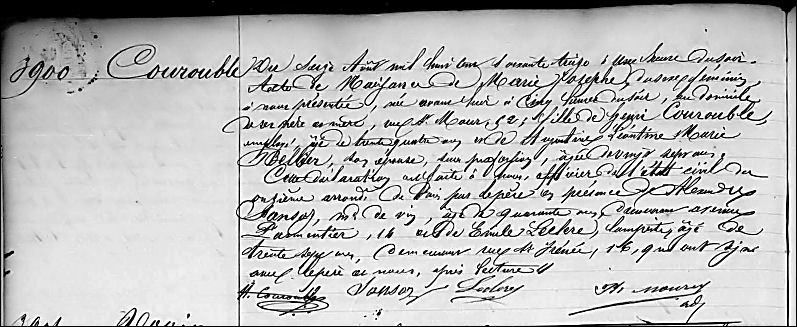 3900 Courouble Du Seize Août mil huit cent soixante treize à une heure du soir.
Acte de Naissance de Marie Josèphe, du sexe féminin,
à nous présentée, née avant hier à cinq heures du soir, au domicile
de ses père et mère, rue St Maur, 52; fille de Henri Courouble,
employé, âgé de trente quatre ans et de Léontine Marie
son épouse, sans profession, âgée de vingt sept ans.
Cette déclaration est faite à nous, officier de l'état civil du
onzième arrondt de Paris par le père en présence de Alexandre
Sansoz, md de vin, âgé de quarante ans, demeurant avenue
Parmentier, 14 et de Emile Leclere, comptable, âgé de
trente sept ans, demeurant rue St Irénée, 16, qui ont signé
avec le père et nous, après lecture
H. Courouble Sansoz Leclere
adj